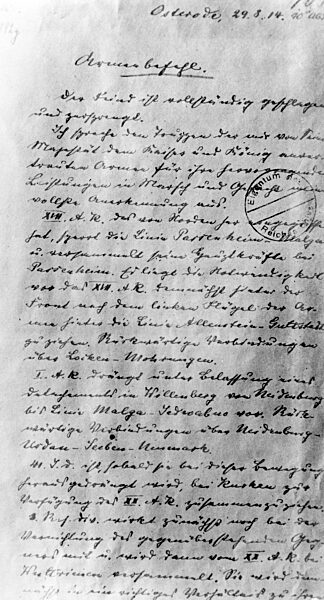 Osterode, 29.8.14.
Armeebefehl.
Der Feind ist vollständig geschlagen
und zersprengt.
Ich spreche den Truppen der mir von Seiner
Majestät dem Kaiser und König anver-
trauten Armee für ihre hervorragenden
Leistungen in Marsch und Gefecht meine
vollste Anerkennung aus.
XVII. A.K. das von Norden her eingegriffen
hat, sperrt die Linie Passenheim-
u. versammelt seine Hauptkräfte bei
Passenheim. Es liegt die Notwendigkeit
vor das XVII. A.K. demnächst hinter der
Front nach dem linken Flügel der Ar-
mee hinter die Linie Allenstein-Guttstadt
zu ziehen. Rückwärtige Verbindungen
über Locken-Mohrungen.
I. A.K. drängt unter Belassung eines
Detachements in Willenberg von Neidenburg
bis Linie Malga-Jedwabno vor. Rück-
wärtige Verbindungen über Neidenburg-
Usdau-Seeben-Neumark.
41. I.D. ist sobald sie bei dieser Bewegung
herausgedrängt wird bei Kurken zur
Verfügung des XX. A.K. zusammenzuziehen.
3. Res. Div. wirkt zunächst noch bei der
Vernichtung des gegenüberstehenden Geg-
ners mit u. wird dann vom XX. A.K. bei
versammelt. Sie wird dem-
nächst in ein richtiges Verhältnis zu ihren
Eigentum des
Reichs